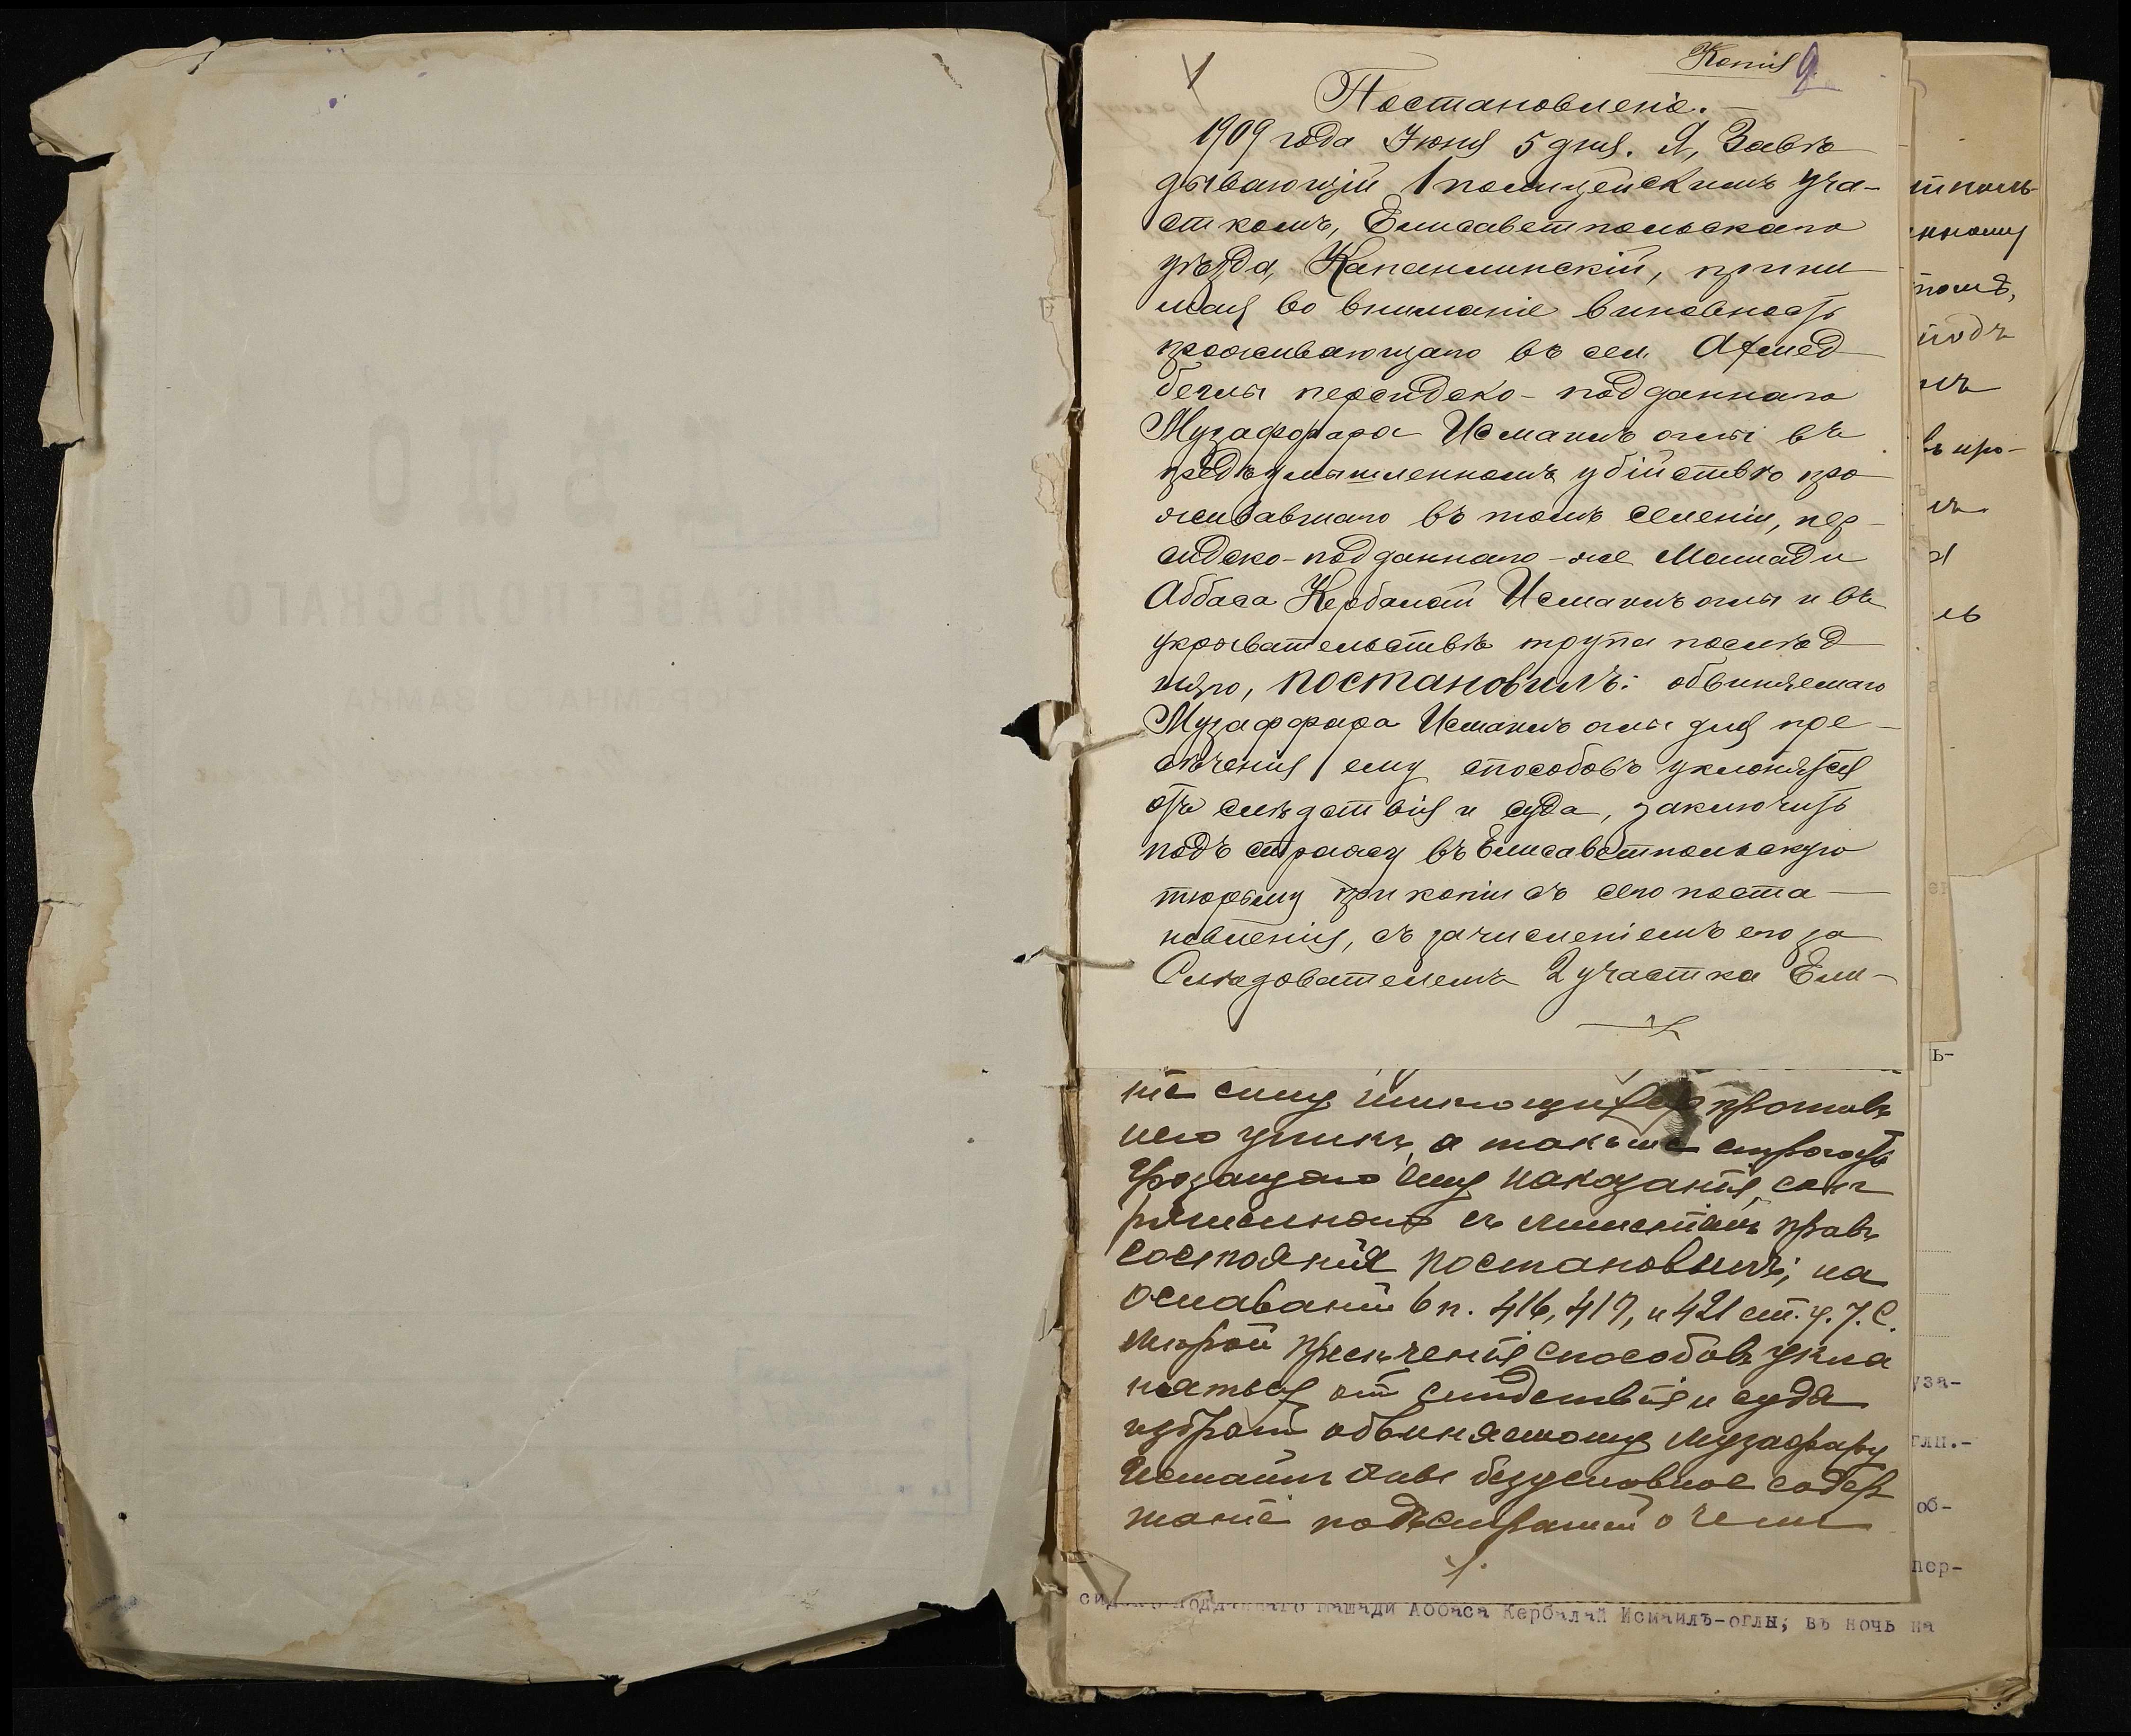 Копія 9
1
Постановленіе.
1909 года Іюня 5 дня. Я, Завѣ
дывающій 1 полицейскимъ уча-
сткомъ, Елисаветпольскаго
уѣзда, Капанлинскій, прини
мая во вниманіе виновность
проживающаго въ сел. Ахмед
беглы персидско-подданнаго
Музафффара Исмаилъ оглы въ
предъумышленномъ убійствѣ про
живавшаго въ томъ селеніи, пер-
сидско-подданнаго-же Машади
Аббаса Кербалай Исмаилъ оглы и въ
укрывательствѣ трупа послѣд
няго, постановилъ: обвиняемаго
Музаффара Исмаилъ оглы для пре-
сѣченія ему способовъ уклоняться
отъ слѣдствія и суда, заключить
подъ стражу въ Елисаветпольскую
тюрьму при копіи съ сего поста-
новленія, съ зачисленіемъ его за
Слѣдователемъ 2 участка Ели-
ніе силу имѣющихся противъ
него уликъ, а также строгость
грозящаго ему наказанія, соп
ряженнаго съ лишеніемъ правъ
состоянія постановилъ; на
основаніи 6 п. 416, 417, и 421 ст. У. У. С.
мѣрой пресѣченія способовъ укла
няться отъ слѣдствія и суда
избрать обвиняемому Музафару
Исмаилъ оглы безусловное содер
жаніе подъ стражей о чемъ
сидско-подданнаго Машади Аббаса Кербалай Исмаилъ-оглы; въ ночь на
полѣ,
подъ
въ про-
ль
ь-
уза-
глы.-
об-
пер-
ДѢЛО
ЕЛИСАВЕТПОЛЬСКАГО